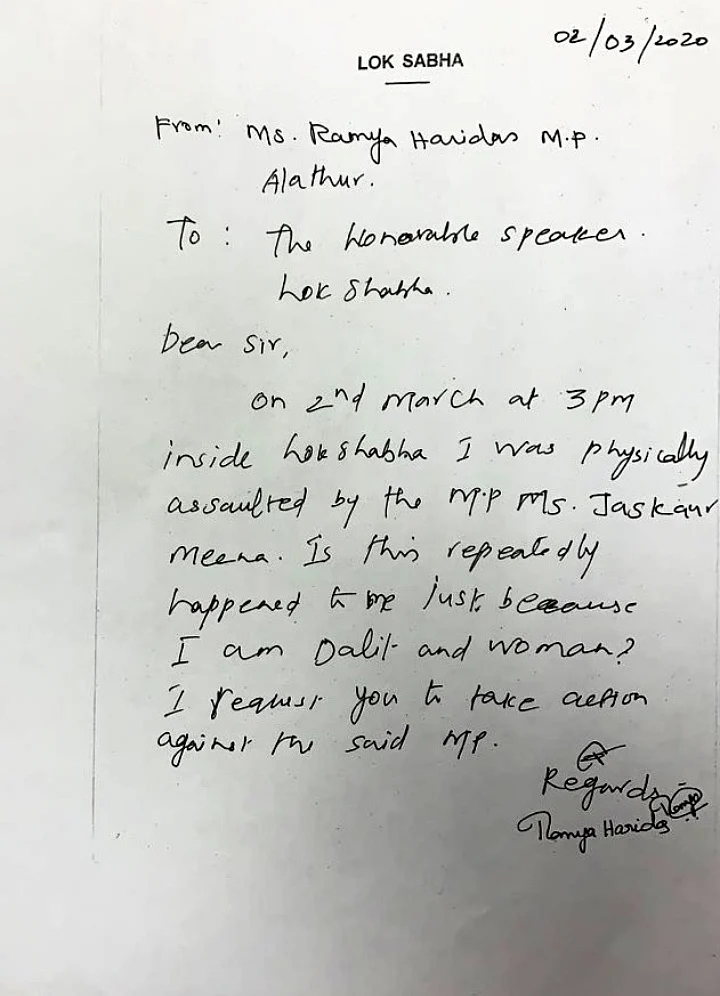 02/03/2020
LOK SABHA
From: Ms. Ramya Haridas M.P.
Alathur.
To : The Honorable speaker.
Lok Shabha.
Dear Sir,
On 2nd March at 3 pm
inside Lokshabha I was physically
assaulted by the M.P Ms. Jaskaur
Meena. Is this repeatedly
happened to me just because
I am Dalit and woman?
I request you to take action
against the said MP.
Regards
Ramya Haridas